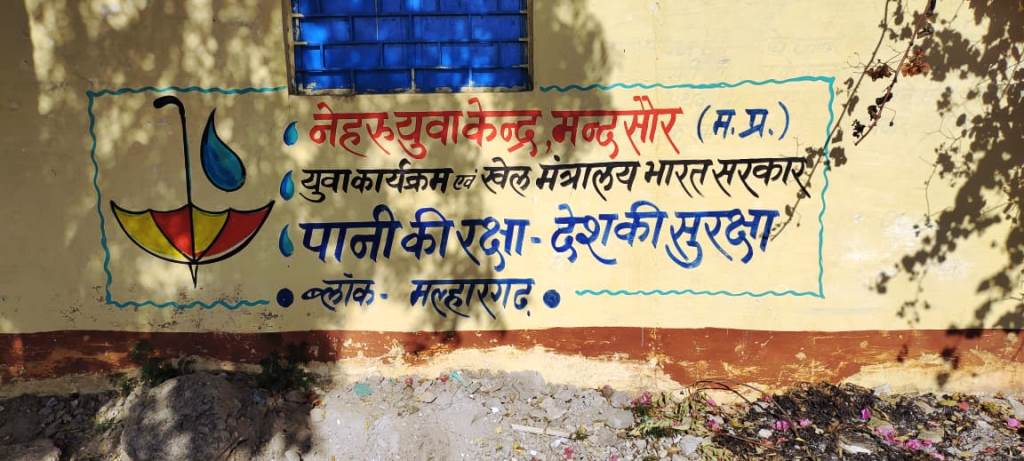 नेहरु युवा केन्द्र, मन्दसौर (म.प्र.)
युवा कार्यक्रम एवं खेल मंत्रालय भारत सरकार
पानी की रक्षा - देश की सुरक्षा
ब्लॉक - मल्हारगढ़